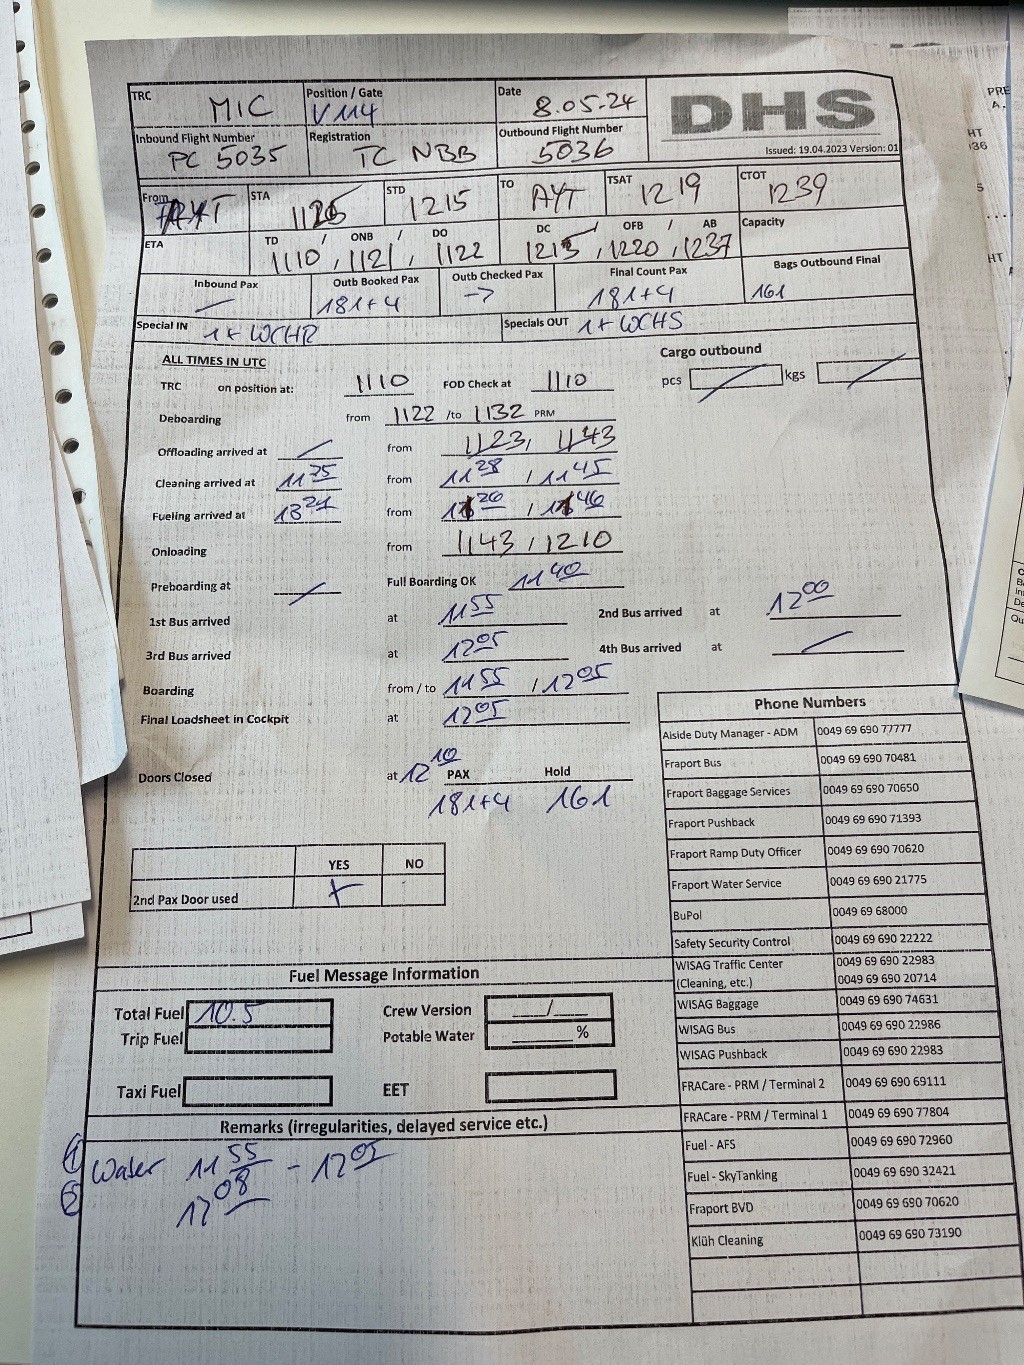 TRC MIC Position / Gate V114 Date 8.05-24 DHS
Inbound Flight Number PC 5035 Registration TC NBB Outbound Flight Number 5036 Issued: 19.04.2023 Version: 01
From AYT STA STD 1215 TO AYT TSAT 1219 CTOT 1239
ETA TD / ONB / DO 1110, 1121, 1122 DC / OFB / AB 1215, 1220, 1237 Capacity
Inbound Pax Outb Booked Pax 181+4 Outb Checked Pax -> Final Count Pax 181+4 Bags Outbound Final 161
Special IN 1+ WCHR Specials OUT 1+ WCHS
ALL TIMES IN UTC Cargo outbound
TRC on position at: 1110 FOD Check at 1110 pcs kgs
Deboarding from 1122 /to 1132 PRM
Offloading arrived at from 1123, 1143
Cleaning arrived at from 1128 / 1145
Fueling arrived at from
Onloading from 1143 / 1210
Preboarding at Full Boarding OK 1140
1st Bus arrived at 1155 2nd Bus arrived at 1200
3rd Bus arrived at 1205 4th Bus arrived at
Boarding from / to 1155 / 1205
Final Loadsheet in Cockpit at 1205
Doors Closed at 1210 PAX Hold
181+4 161
YES NO
2nd Pax Door used +
Phone Numbers
Aiside Duty Manager - ADM 0049 69 690 77777
Fraport Bus 0049 69 690 70481
Fraport Baggage Services 0049 69 690 70650
Fraport Pushback 0049 69 690 71393
Fraport Ramp Duty Officer 0049 69 690 70620
Fraport Water Service 0049 69 690 21775
BuPol 0049 69 68000
Safety Security Control 0049 69 690 22222
WISAG Traffic Center 0049 69 690 22983
(Cleaning, etc.) 0049 69 690 20714
WISAG Baggage 0049 69 690 74631
WISAG Bus 0049 69 690 22986
WISAG Pushback 0049 69 690 22983
FRACare - PRM / Terminal 2 0049 69 690 69111
FRACare - PRM / Terminal 1 0049 69 690 77804
Fuel - AFS 0049 69 690 72960
Fuel - SkyTanking 0049 69 690 32421
Fraport BVD 0049 69 690 70620
Klüh Cleaning 0049 69 690 73190
Fuel Message Information
Total Fuel 10.5 Crew Version ___/___
Trip Fuel Potable Water _____ %
Taxi Fuel EET
Remarks (irregularities, delayed service etc.)
Water 1155 - 1205
1208